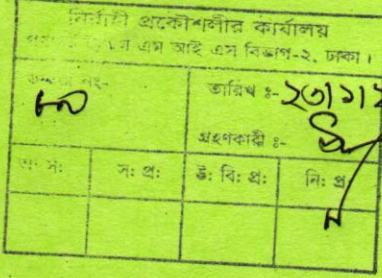 নির্বাহী প্রকৌশলীর কার্যালয়
এম আই এস বিভাগ-২, ঢাকা।
নং-
তারিখ :- ২৩/১১/
গ্রহণকারী :-
সঃ প্রঃ
উঃ বিঃ প্রঃ
নিঃ প্র